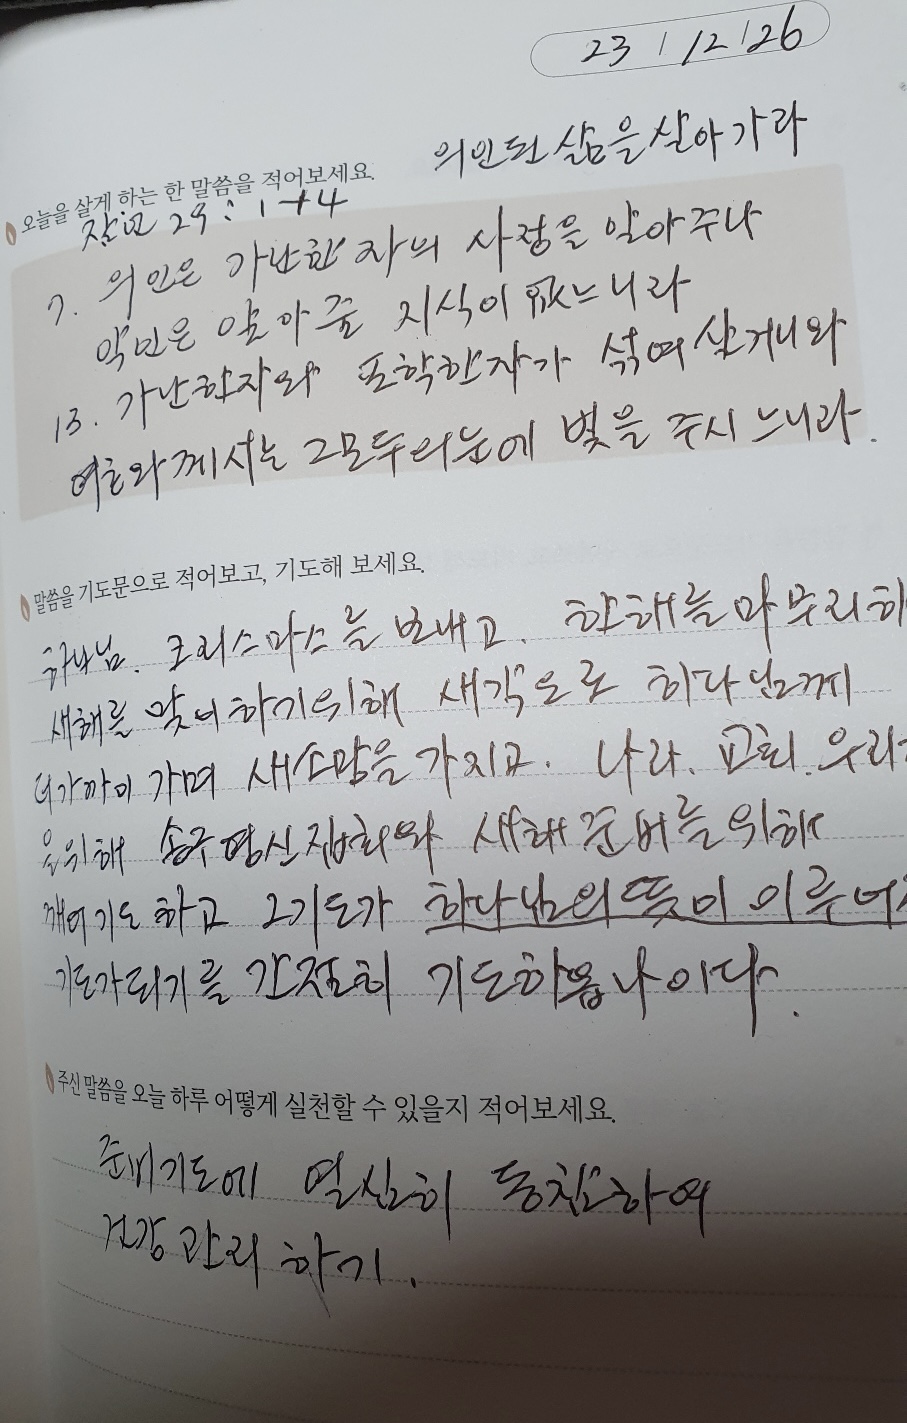 23/12/26
의인된 삶을 살아가라
오늘을 살게 하는 한 말씀을 적어보세요.
잠언 29:1-14
7. 의인은 가난한 자의 사정을 알아주나
악인은 알아줄 지식이 없느니라
13. 가난한자와 포학한자가 섞여 살거니와
여호와께서는 그모두의눈에 빛을 주시느니라.
말씀을 기도문으로 적어보고, 기도해 보세요.
하나님. 크리스마스를 보내고. 한해를 마무리하
새해를 맞이하기위해 새각오로 하나님께
더가까이 가며 새소망을 가지고. 나라. 교회. 우리
을위해 송구영신집회와 새해준비를위해
깨어기도하고 그기도가 하나님의뜻이 이루어
기도가되기를 간절히 기도하옵나이다.
주신 말씀을 오늘 하루 어떻게 실천할 수 있을지 적어보세요.
준비기도에 열심히 동참하여
건강관리 하기.